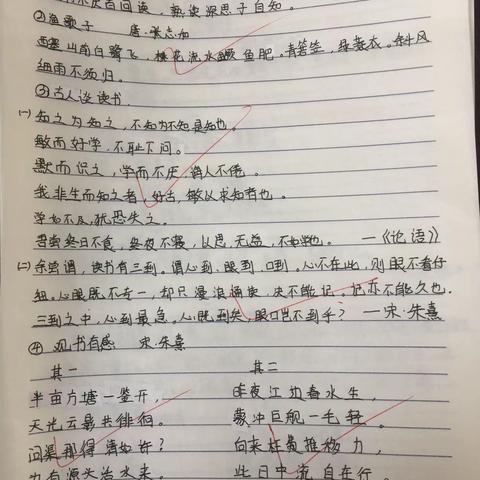 百回读,熟读深思子自知。
②渔歌子 唐·张志和
西塞山前白鹭飞,桃花流水鳜鱼肥。青箬笠,绿蓑衣。斜风
细雨不须归。
③古人谈读书
(一) 知之为知之,不知为不知是知也。
敏而好学,不耻下问。
默而识之,学而不厌,诲人不倦。
我非生而知之者,好古,敏以求知者也。
学如不及,犹恐失之。
吾尝终日不食,终夜不寝,以思,无益,不如学也。 —《论语》
(二) 余尝谓,读书有三到。谓心到、眼到、口到。心不在此,则眼不看仔
细。心眼既不专一,却只漫浪诵读,决不能记,记亦不能久也。
三到之中,心到最急。心既到矣,眼口岂不到乎? —宋·朱熹
④ 观书有感 宋·朱熹
其一 其二
半亩方塘一鉴开, 昨夜江边春水生,
天光云影共徘徊。 蒙冲巨舰一毛轻。
问渠那得清如许? 向来枉费推移力,
为有源头活水来。 此日中流自在行。